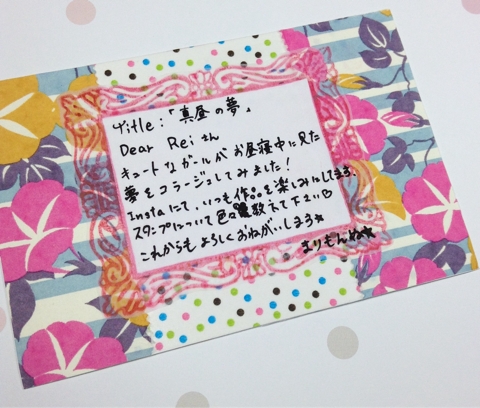 Title:「真昼の夢」
Dear Reiさん
キュートなガールがお昼寝中に見た
夢をコラージュしてみました!
Instaにて、いつも作品を楽しみにしてます。
スタンプについて色々教えて下さい♡
これからもよろしくおねがいします☆
まりもんぬ★